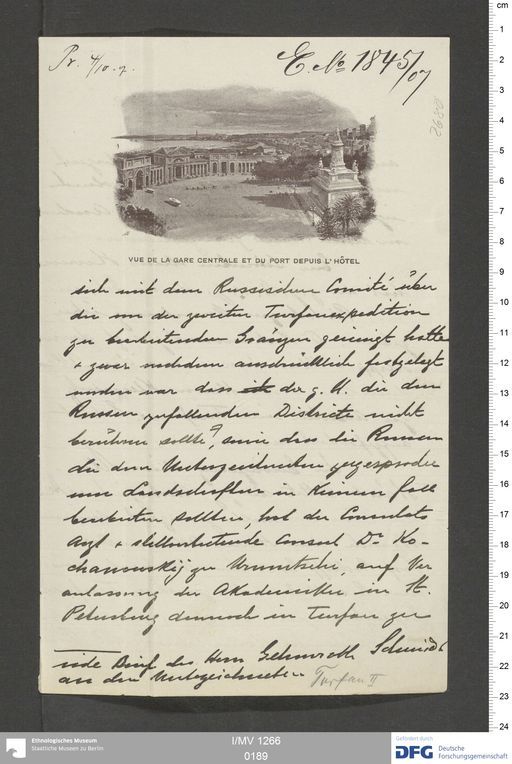 Pr. 4/10. 7.
E. No 1845/07
VUE DE LA GARE CENTRALE ET DU PORT DEPUIS L'HÔTEL
sich mit dem Russischen Comité über
die von der zweiten Turfanexpedition
zu bearbeitenden Gränzen geeinigt hatte
+ zwar nachdem ausdrücklich festgelegt
worden war dass der g. U. die den
Russen zufallenden Districte nicht
berühren sollte, sowie dass die Russen
die dem Unterzeichneten zugesprochenen
Landschaften in keinem Fall
bearbeiten sollten, hat der Consulats
Arzt + stellvertretende Consul Dr Ko-
chanowskij zu Urumtschi, auf Ver
anlassung der Akademiker in St.
Petersburg dennoch in Turfan zu
vide Brief des Herrn Geheimrath Schmidt
an den Unterzeichneten
Turfan II
Ethnologisches Museum
Staatliche Museen zu Berlin
I/MV 1266
0189
Gefördert durch
DFG Deutsche
Forschungsgemeinschaft
cm
1
2
3
4
5
6
7
8
9
10
11
12
13
14
15
16
17
18
19
20
21
22
23
24